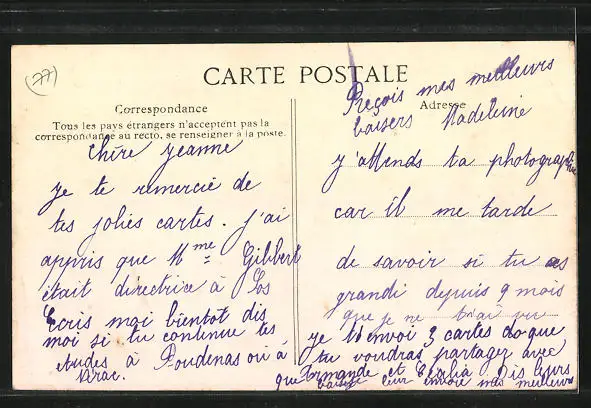 (77)
CARTE POSTALE
Correspondance
Tous les pays étrangers n'acceptent pas la
correspondance au recto, se renseigner à la poste.
Adresse
Chère Jeanne
Je te remercie de
tes jolies cartes. J'ai
appris que Mme Gibbert
était directrice à Sos
Ecris moi bientot dis
moi si tu continue tes
etudes à Poudenas ou à
Nérac.
J'attends ta photographie
car il me tarde
de savoir si tu as
grandi depuis 9 mois
que je ne t'ai vu
Je t'envoi 3 cartes do que
tu voudras partagez avec
Armande et Dis leurs
que leur envoie mes meilleurs
baisers
Reçois mes meilleurs
baisers Madeleine